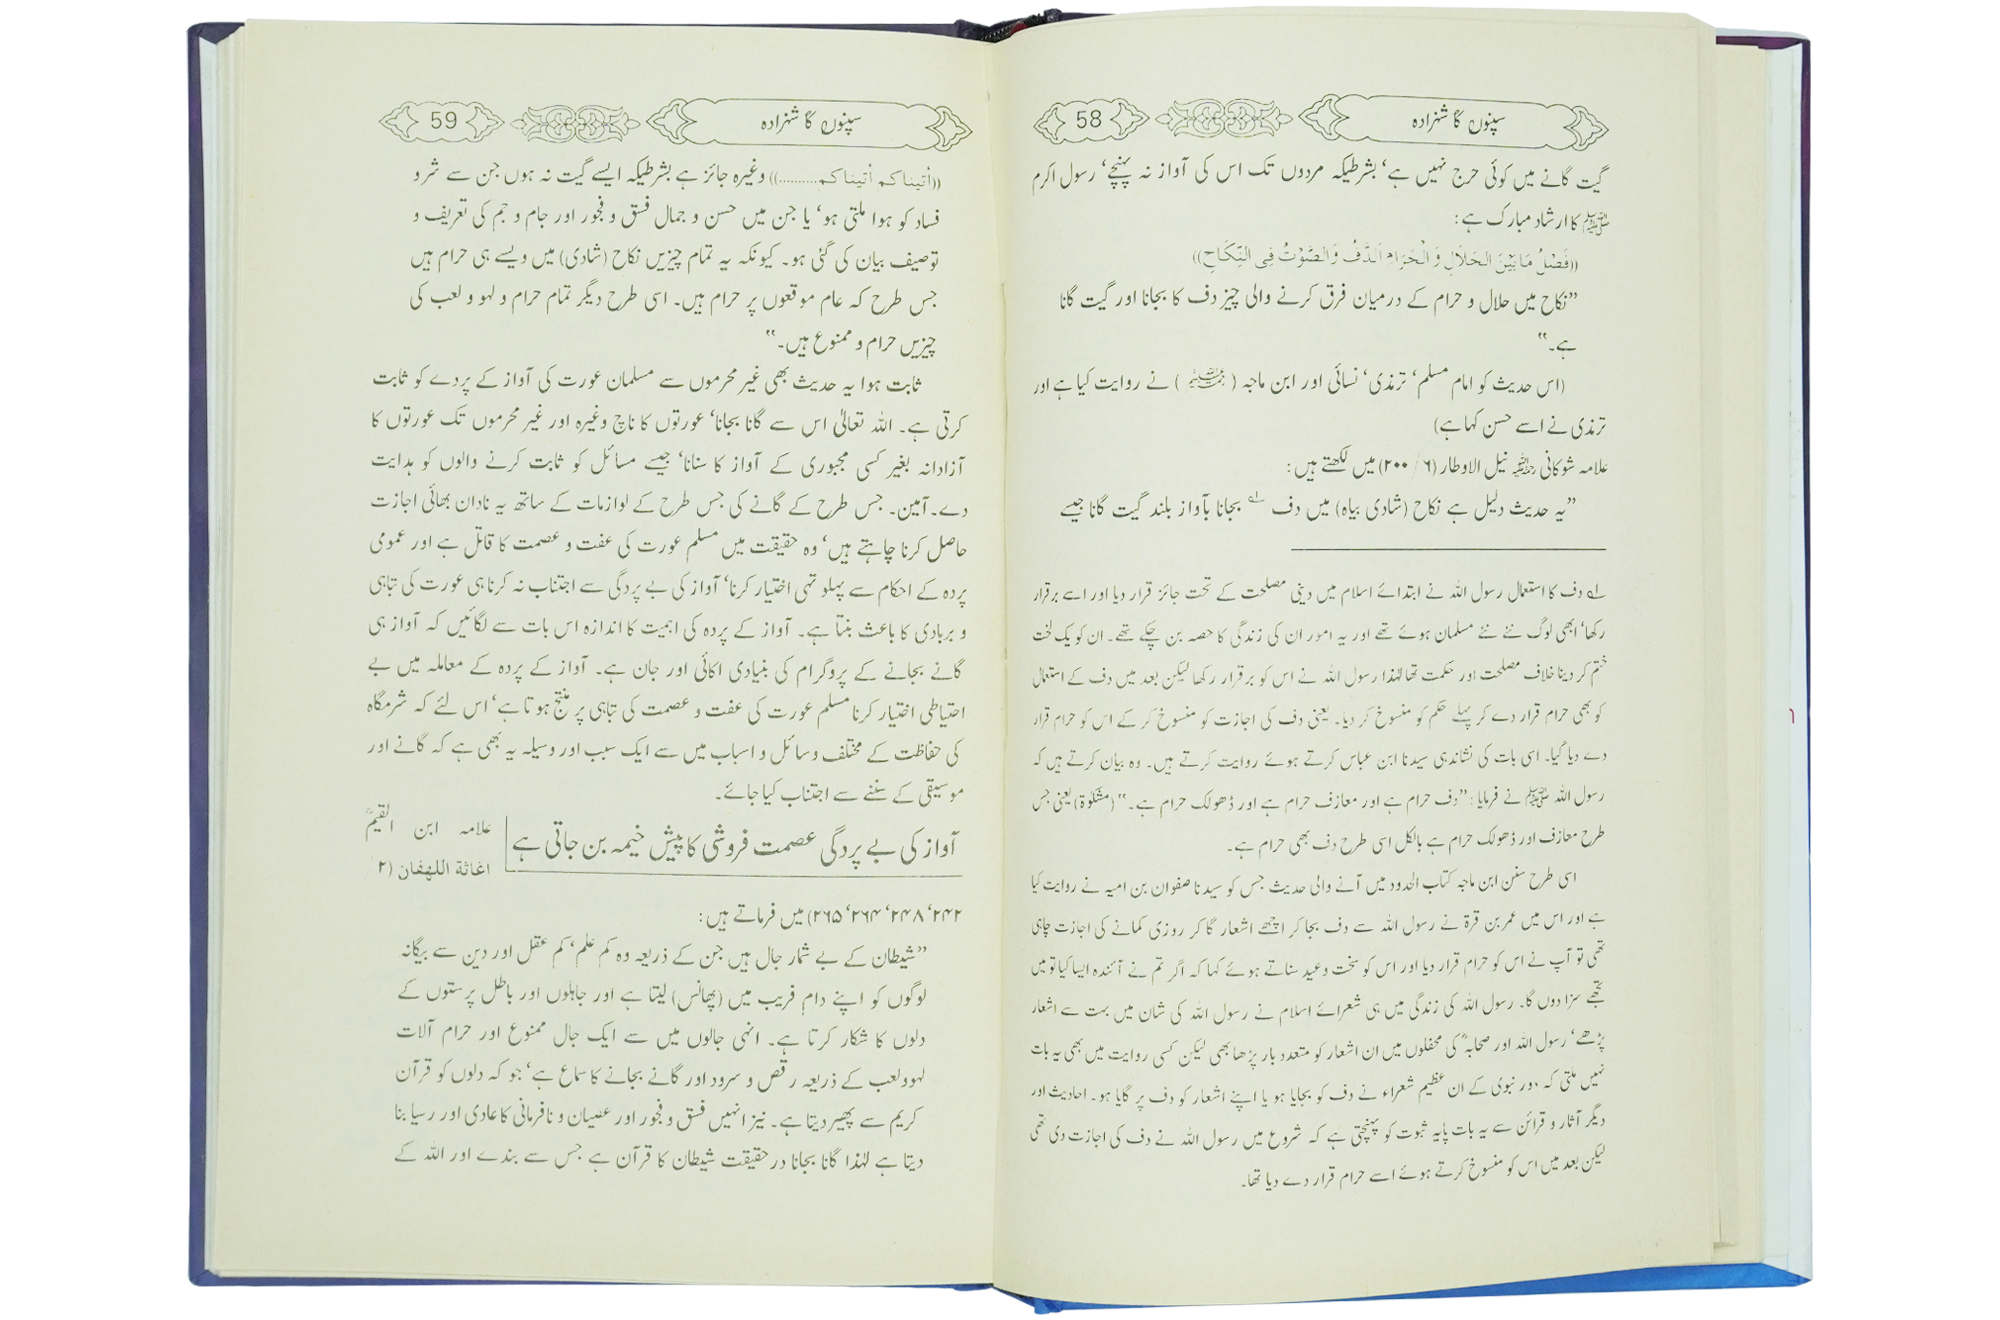 58
سپنوں کا شہزادہ
گیت گانے میں کوئی حرج نہیں ہے، بشرطیکہ مردوں تک اس کی آواز نہ پہنچے، رسول اکرم
ﷺ کا ارشاد مبارک ہے:
((فَصْلُ مَا بَيْنَ الْحَلَالِ وَ الْحَرَامِ الدَّفُّ وَالصَّوْتُ فِى النِّكَاحِ))
”نکاح میں حلال و حرام کے درمیان فرق کرنے والی چیز دف کا بجانا اور گیت گانا
ہے۔“
(اس حدیث کو امام مسلم، ترمذی، نسائی اور ابن ماجہ ( ) نے روایت کیا ہے اور
ترمذی نے اسے حسن کہا ہے)
علامہ شوکانی نیل الاوطار (۶/ ۲۰۰) میں لکھتے ہیں:
”یہ حدیث دلیل ہے نکاح (شادی بیاہ) میں دف بجانا بآواز بلند گیت گانا جیسے
دف کا استعمال رسول اللہ نے ابتدائے اسلام میں دینی مصلحت کے تحت جائز قرار دیا اور اسے برقرار
رکھا، ابھی لوگ نئے نئے مسلمان ہوئے تھے اور یہ امور ان کی زندگی کا حصہ بن چکے تھے۔ ان کو یک لخت
ختم کر دینا خلاف مصلحت اور حکمت تھا لہٰذا رسول اللہ نے اس کو برقرار رکھا لیکن بعد میں دف کے استعمال
کو بھی حرام قرار دے کر پہلے حکم کو منسوخ کر دیا۔ یعنی دف کی اجازت کو منسوخ کر کے اس کو حرام قرار
دے دیا گیا۔ اسی بات کی نشاندہی سیدنا ابن عباس کرتے ہوئے روایت کرتے ہیں۔ وہ بیان کرتے ہیں کہ
رسول اللہ ﷺ نے فرمایا: ”دف حرام ہے اور معازف حرام ہے اور ڈھولک حرام ہے۔“ (مشکوٰة) یعنی جس
طرح معازف اور ڈھولک حرام ہے بالکل اسی طرح دف بھی حرام ہے۔
اسی طرح سنن ابن ماجہ کتاب الحدود میں آنے والی حدیث جس کو سیدنا صفوان بن امیہ نے روایت کیا
ہے اور اس میں عمر بن قرة نے رسول اللہ سے دف بجا کر اچھے اشعار گا کر روزی کمانے کی اجازت چاہی
تھی تو آپ نے اس کو حرام قرار دیا اور اس کو سخت وعید سناتے ہوئے کہا کہ اگر تم نے آئندہ ایسا کیا تو میں
تجھے سزا دوں گا۔ رسول اللہ کی زندگی میں ہی شعرائے اسلام نے رسول اللہ کی شان میں بہت سے اشعار
پڑھے، رسول اللہ اور صحابہؓ کی محفلوں میں ان اشعار کو متعدد بار پڑھا بھی لیکن کسی روایت میں بھی یہ بات
نہیں ملتی کہ دور نبوی کے ان عظیم شعراء نے دف کو بجایا ہو یا اپنے اشعار کو دف پر گایا ہو۔ احادیث اور
دیگر آثار و قرائن سے یہ بات پایہ ثبوت کو پہنچتی ہے کہ شروع میں رسول اللہ نے دف کی اجازت دی تھی
لیکن بعد میں اس کو منسوخ کرتے ہوئے اسے حرام قرار دے دیا تھا۔
59
سپنوں کا شہزادہ
((أتيناكم أتيناكم..........)) وغیرہ جائز ہے بشرطیکہ ایسے گیت نہ ہوں جن سے شر و
فساد کو ہوا ملتی ہو، یا جن میں حسن و جمال فسق و فجور اور جام و جم کی تعریف و
توصیف بیان کی گئی ہو۔ کیونکہ یہ تمام چیزیں نکاح (شادی) میں ویسے ہی حرام ہیں
جس طرح کہ عام موقعوں پر حرام ہیں۔ اسی طرح دیگر تمام حرام و لہو و لعب کی
چیزیں حرام و ممنوع ہیں۔“
ثابت ہوا یہ حدیث بھی غیر محرموں سے مسلمان عورت کی آواز کے پردے کو ثابت
کرتی ہے۔ اللہ تعالیٰ اس سے گانا بجانا، عورتوں کا ناچ وغیرہ اور غیر محرموں تک عورتوں کا
آزادانہ بغیر کسی مجبوری کے آواز کا سنانا، جیسے مسائل کو ثابت کرنے والوں کو ہدایت
دے۔ آمین۔ جس طرح کے گانے کی جس طرح کے لوازمات کے ساتھ یہ نادان بھائی اجازت
حاصل کرنا چاہتے ہیں، وہ حقیقت میں مسلم عورت کی عفت و عصمت کا قاتل ہے اور عمومی
پردہ کے احکام سے پہلو تہی اختیار کرنا، آواز کی بے پردگی سے اجتناب نہ کرنا ہی عورت کی تباہی
و بربادی کا باعث بنتا ہے۔ آواز کے پردہ کی اہمیت کا اندازہ اس بات سے لگائیں کہ آواز ہی
گانے بجانے کے پروگرام کی بنیادی اکائی اور جان ہے۔ آواز کے پردہ کے معاملہ میں بے
احتیاطی اختیار کرنا مسلم عورت کی عفت و عصمت کی تباہی پر منتج ہوتا ہے، اس لئے کہ شرمگاہ
کی حفاظت کے مختلف وسائل و اسباب میں سے ایک سبب اور وسیلہ یہ بھی ہے کہ گانے اور
موسیقی کے سننے سے اجتناب کیا جائے۔
آواز کی بے پردگی عصمت فروشی کا پیش خیمہ بن جاتی ہے
علامہ ابن القیمؒ
اغاثة اللهفان (۲
۲۴۲، ۲۴۸، ۲۶۴، ۲۶۵) میں فرماتے ہیں:
”شیطان کے بے شمار جال ہیں جن کے ذریعہ وہ کم علم، کم عقل اور دین سے بیگانہ
لوگوں کو اپنے دام فریب میں (پھانس) لیتا ہے اور جاہلوں اور باطل پرستوں کے
دلوں کا شکار کرتا ہے۔ انہی جالوں میں سے ایک جال ممنوع اور حرام آلات
لہوولعب کے ذریعہ رقص و سرود اور گانے بجانے کا سماع ہے، جو کہ دلوں کو قرآن
کریم سے پھیر دیتا ہے۔ نیز انہیں فسق و فجور اور عصیان و نافرمانی کا عادی اور رسیا بنا
دیتا ہے لہٰذا گانا بجانا درحقیقت شیطان کا قرآن ہے جس سے بندے اور اللہ کے